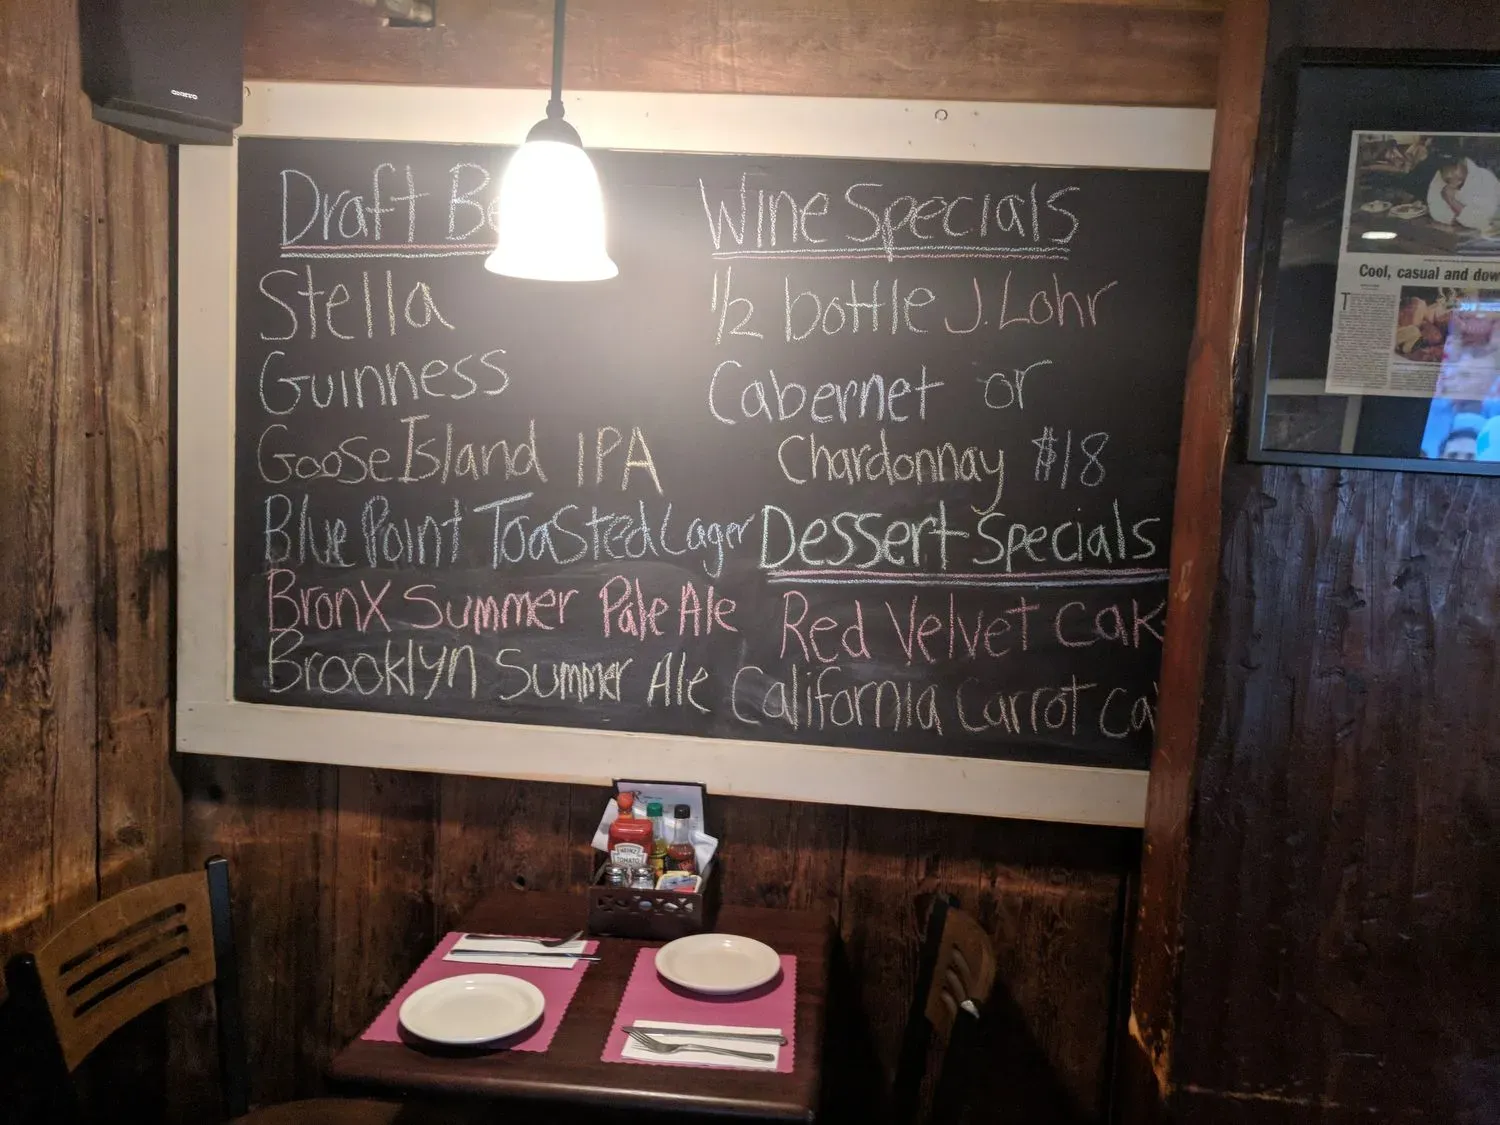 ONKYO
Draft Be
Stella
Guinness
Goose Island IPA
Blue Point Toasted Lager
Bronx Summer Pale Ale
Brooklyn Summer Ale
Wine Specials
1/2 bottle J. Lohr
Cabernet or
Chardonnay $18
Dessert Specials
Red Velvet Cak
California Carrot Ca
Cool, casual and dow
HEINZ
TOMATO